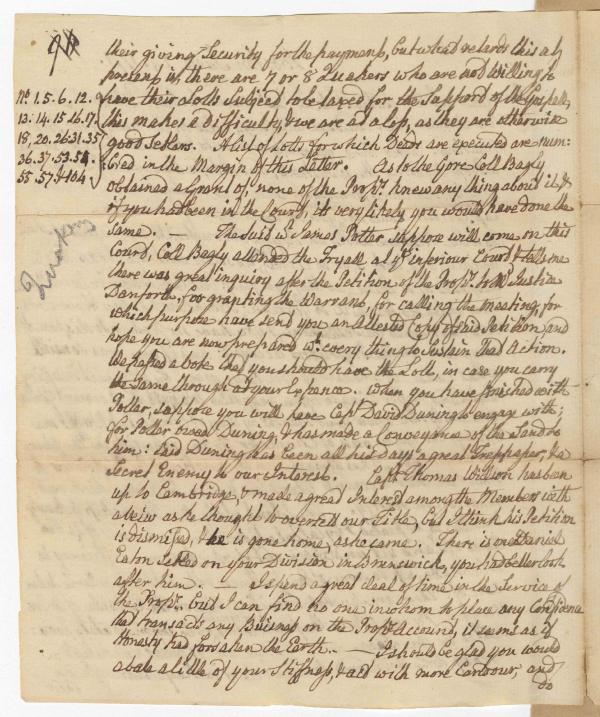 their giving Security for the payment, but what retards this at
present is, there are 7 or 8 Quakers who are not willing to
have their Lotts Subject to be taxed for the Support of the Gospell,
this makes a difficulty, & we are at a loss, as they are otherwise
good Setlers. A list of Lotts for which Deeds are executed are num:
bred in the Margin of this Letter. As to the Gore Coll Bagly
obtained a Grant of, none of the Prop.rs knew any thing about it, &
if you had been in the Court, its very likely you would have done the
Same. — The Suid w.t James Potter suppose will come on this
Court, Coll Bagly attended the Tryall at y.e inferiour Court & tells me
there was great inquiry after the Petition of the Prop.rs to Mr. Justice
Danforth, for granting the Warrant, for calling the meeting, for
which purpose have send you an Attested Copy of said Petition, and
hope you are now prepared w.t every thing to Sustain that Action.
We passed a vote that you should have the Lott, in case you carry
the Same through at your Expence. when you have finished with
Potter, suppose you will have Capt David Duning to engage with;
for Potter owed Duning, & has made a Conveyance of the Land to
him: said Duning has been all his days a great Treppaser, & a
Secret Enemy to our Interest. Capt Thomas Willson has been
up to Cambridge, & made a great Interest among the Members with
a Veiw as he thought to oversett our Title, but I think his Petition
is dismised, & he is gone home, as he came. There is one Daniel
Eaton Setled on your Division in Brunswick, you had better look
after him. — I spend a great deal of time in the Service of
the Prop.rs, but I can find no one in whom to place any Confidence
that transacts any Buisness on the Prop.rs Account, it seems as if
Honesty had forsaken the Earth. — I should be glad you would
abate a little of your Stiffness, & act with more Candour, and
do
No. 1. 5. 6. 12.
13. 14. 15. 16. 17.
18, 20. 26. 31. 35
36. 37. 53. 54.
55. 57. & 104
Quakers